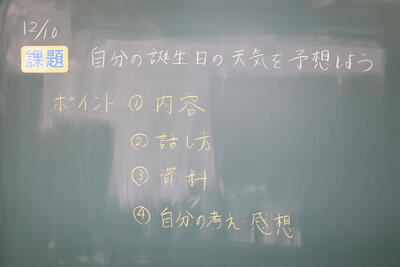 12/10
課題 自分の誕生日の天気を予想しよう
ポイント ① 内容
② 話し方
③ 資料
④ 自分の考え・感想